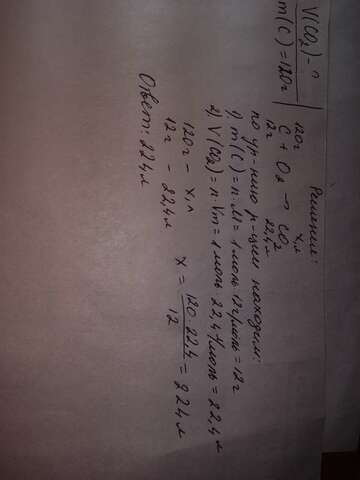 V(CO₂) - ?
m(C) = 120г
Решение:
120г x, л
C + O₂ → CO₂
12г 22,4л
по ур-нию р-ции находим:
1) m(C) = n · M = 1 моль · 12г/моль = 12г
2) V(CO₂) = n · Vm = 1 моль · 22,4л/моль = 22,4 л
120г - x, л
12г - 22,4л
x = 120 · 22,4 / 12 = 224 л
Ответ: 224 л